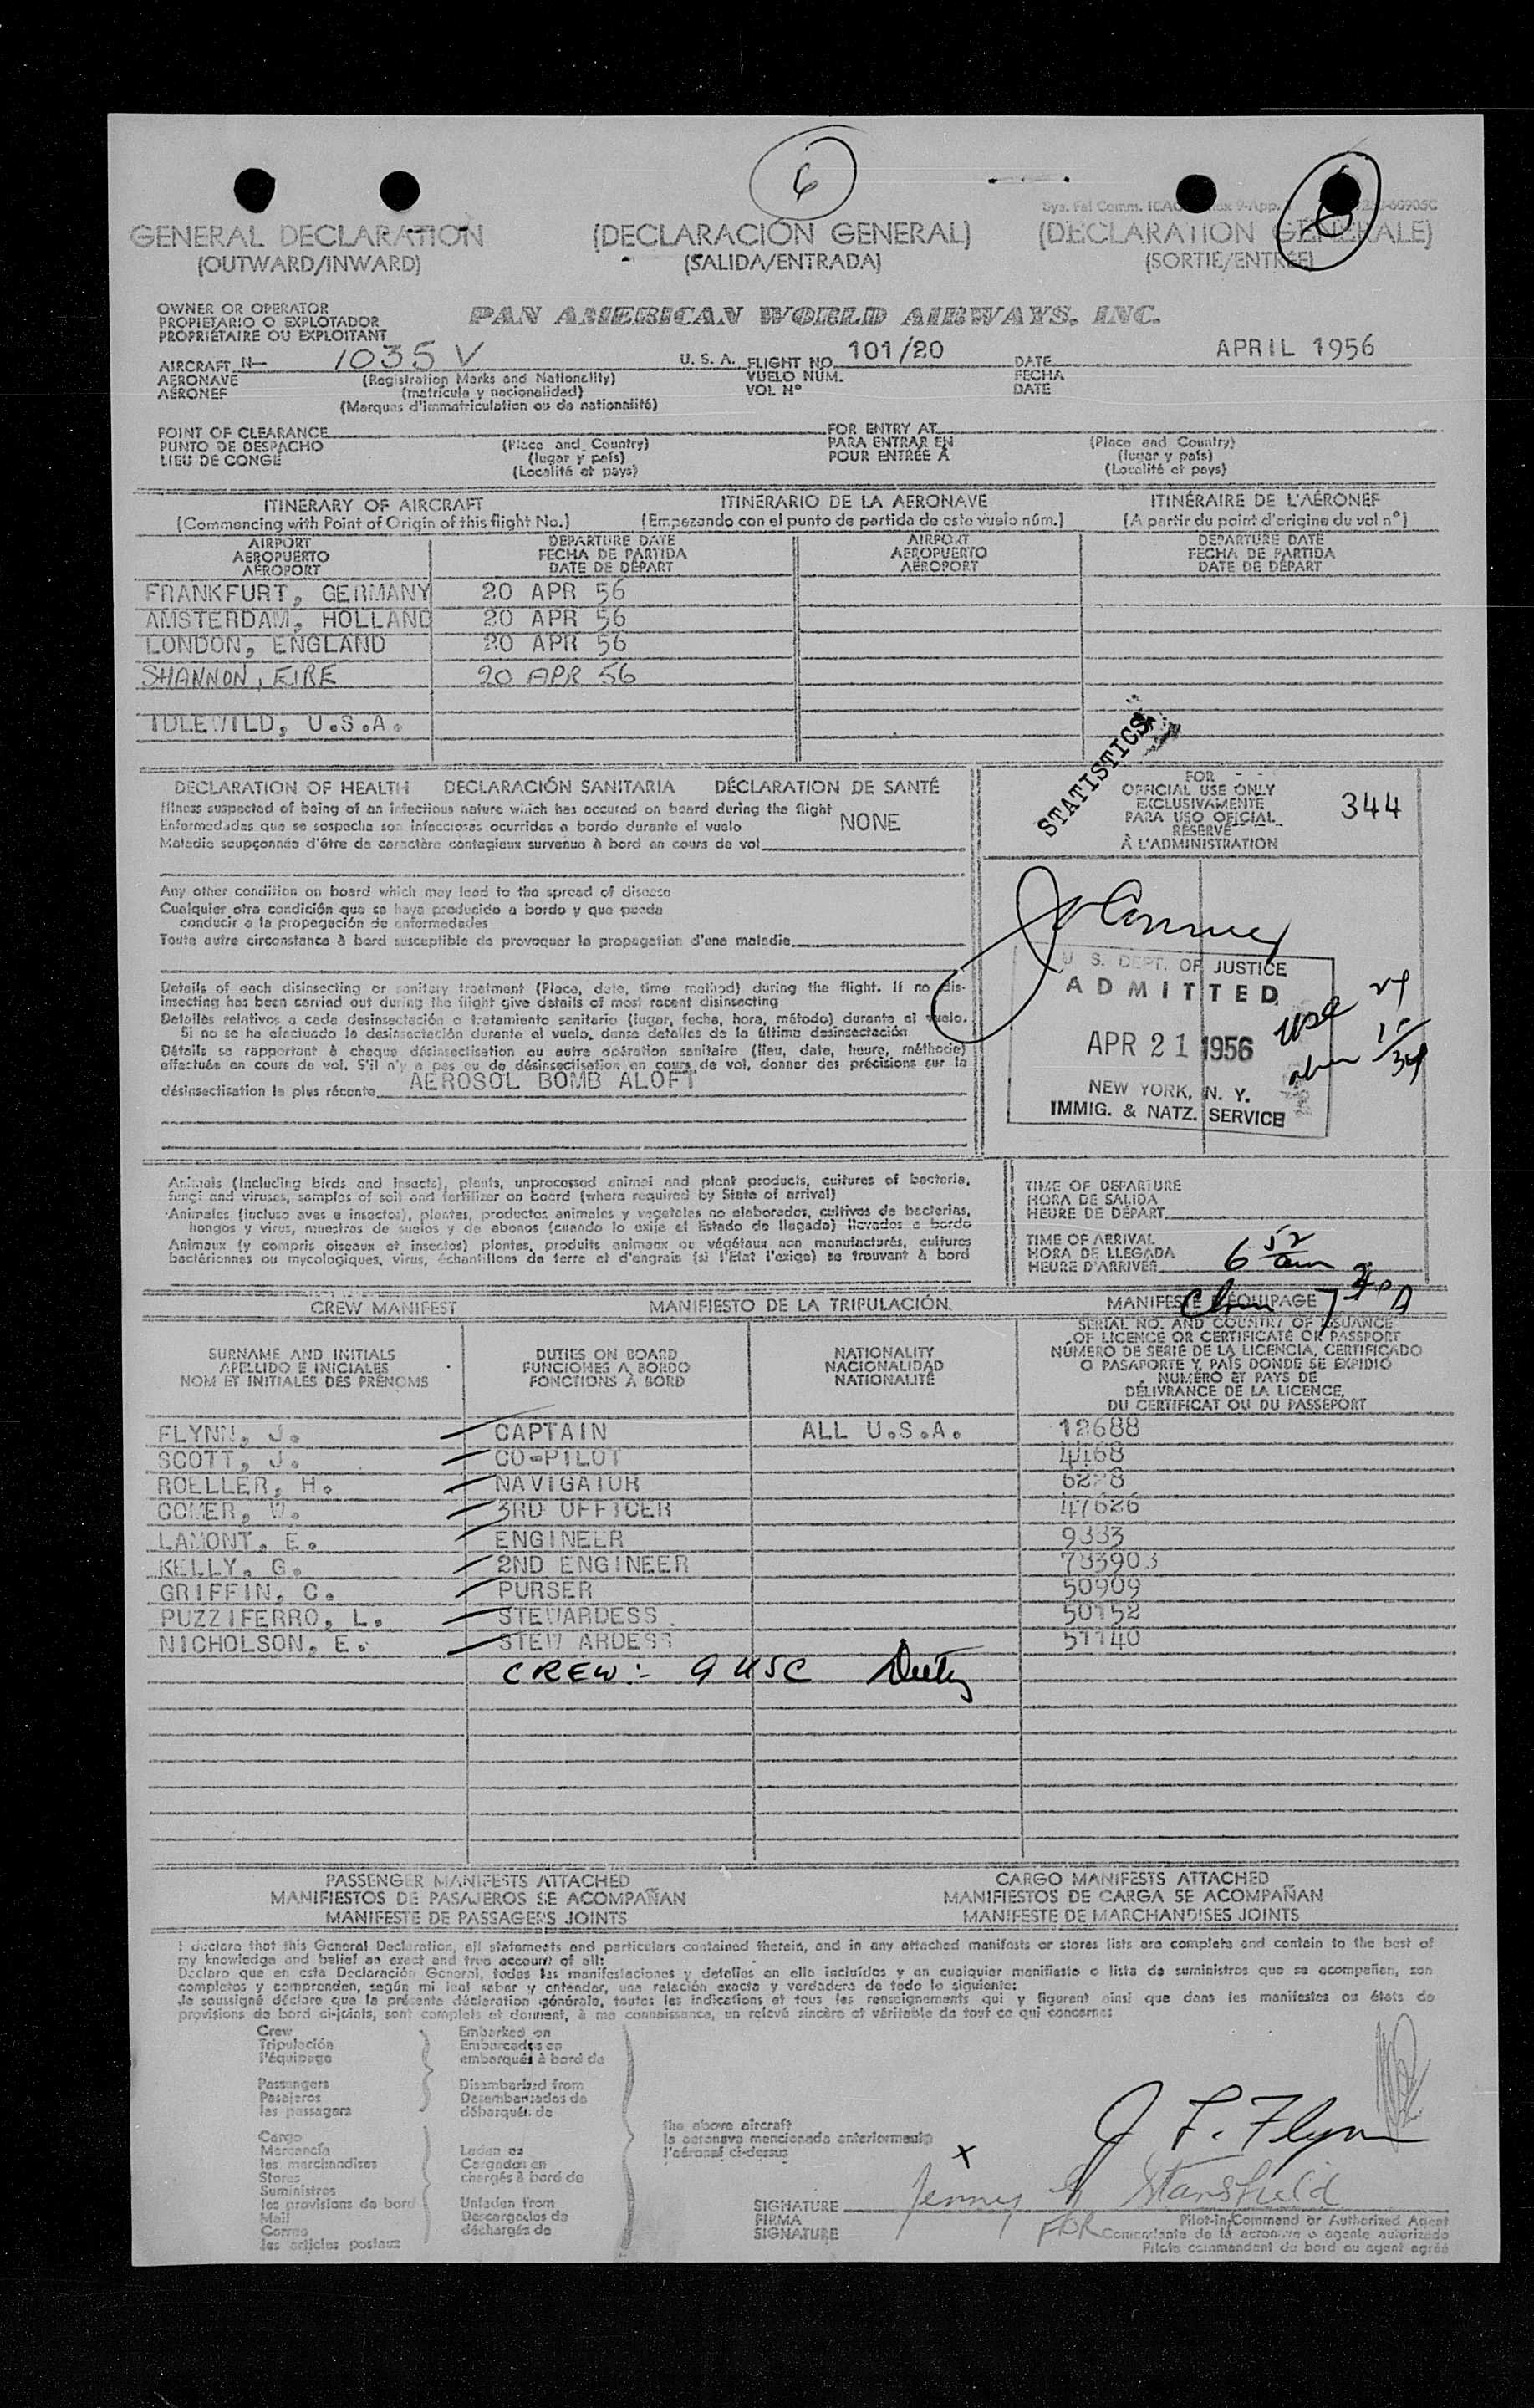 6
8
Sys. Fel Comm. ICAO 9-App.
GENERAL DECLARATION
(OUTWARD/INWARD)
(DECLARACIÓN GENERAL)
(SALIDA/ENTRADA)
(DECLARATION GÉNÉRALE)
(SORTIE/ENTRÉE)
OWNER OR OPERATOR
PROPIETARIO O EXPLOTADOR
PROPRIÉTAIRE OU EXPLOITANT
PAN AMERICAN WORLD AIRWAYS, INC.
AIRCRAFT N- 1035 V U. S. A. FLIGHT NO. 101/20 DATE APRIL 1956
AERONAVE (Registration Marks and Nationality) VUELO NÚM. FECHA
AÉRONEF (matrícula y nacionalidad) VOL Nº DATE
(Marques d'immatriculation ou de nationalité)
POINT OF CLEARANCE FOR ENTRY AT
PUNTO DE DESPACHO (Place and Country) PARA ENTRAR EN (Place and Country)
LIEU DE CONGÉ (lugar y país) POUR ENTRÉE À (lugar y país)
(Localité et pays) (Localité et pays)
ITINERARY OF AIRCRAFT ITINERARIO DE LA AERONAVE ITINÉRAIRE DE L'AÉRONEF
(Commencing with Point of Origin of this flight No.) (Empezando con el punto de partida de este vuelo núm.) (A partir du point d'origine du vol nº)
AIRPORT DEPARTURE DATE AIRPORT DEPARTURE DATE
AEROPUERTO FECHA DE PARTIDA AEROPUERTO FECHA DE PARTIDA
AÉROPORT DATE DE DÉPART AÉROPORT DATE DE DÉPART
FRANKFURT, GERMANY 20 APR 56
AMSTERDAM, HOLLAND 20 APR 56
LONDON, ENGLAND 20 APR 56
SHANNON, EIRE 20 APR 56
IDLEWILD, U.S.A.
STATISTICS
DECLARATION OF HEALTH DECLARACIÓN SANITARIA DÉCLARATION DE SANTÉ
Illness suspected of being of an infectious nature which has occured on board during the flight
Enfermedades que se sospecha son infecciosas ocurridas a bordo durante el vuelo NONE
Maladie soupçonnée d'être de caractère contagieux survenue à bord en cours de vol
Any other condition on board which may lead to the spread of disease
Cualquier otra condición que se haya producido a bordo y que pueda
conducir a la propagación de enfermedades
Toute autre circonstance à bord susceptible de provoquer la propagation d'une maladie
Details of each disinsecting or sanitary treatment (Place, date, time method) during the flight. If no dis-
insecting has been carried out during the flight give details of most recent disinsecting
Detalles relativos a cada desinsectación o tratamiento sanitario (lugar, fecha, hora, método) durante el vuelo.
Si no se ha efectuado la desinsectación durante el vuelo, dense detalles de la última desinsectación
Détails se rapportant à chaque désinsectisation ou autre opération sanitaire (lieu, date, heure, méthode)
effectués en cours de vol. S'il n'y a pas eu de désinsectisation en cours de vol, donner des précisions sur la
désinsectisation la plus récente AEROSOL BOMB ALOFT
FOR
OFFICIAL USE ONLY
EXCLUSIVAMENTE
PARA USO OFICIAL
RÉSERVÉ
À L'ADMINISTRATION
344
U. S. DEPT. OF JUSTICE
ADMITTED
APR 21 1956
NEW YORK, N. Y.
IMMIG. & NATZ. SERVICE
Animals (Including birds and insects), plants, unprocessed animal and plant products, cultures of bacteria,
fungi and viruses, samples of soil and fertilizer on board (where required by State of arrival)
Animales (incluso aves e insectos), plantas, productos animales y vegetales no elaborados, cultivos de bacterias,
hongos y virus, muestras de suelos y de abonos (cuando lo exija el Estado de llegada) llevados a bordo
Animaux (y compris oiseaux et insectes) plantes, produits animaux ou végétaux non manufacturés, cultures
bactériennes ou mycologiques, virus, échantillons de terre et d'engrais (si l'Etat l'exige) se trouvant à bord
TIME OF DEPARTURE
HORA DE SALIDA
HEURE DE DÉPART
TIME OF ARRIVAL
HORA DE LLEGADA
HEURE D'ARRIVÉE 6 52 am
CREW MANIFEST MANIFIESTO DE LA TRIPULACIÓN MANIFESTE D'ÉQUIPAGE
SURNAME AND INITIALS
APELLIDO E INICIALES
NOM ET INITIALES DES PRÉNOMS
DUTIES ON BOARD
FUNCIONES A BORDO
FONCTIONS À BORD
NATIONALITY
NACIONALIDAD
NATIONALITÉ
SERIAL NO. AND COUNTRY OF ISSUANCE
OF LICENCE OR CERTIFICATE OR PASSPORT
NÚMERO DE SERIE DE LA LICENCIA, CERTIFICADO
O PASAPORTE Y PAÍS DONDE SE EXPIDIÓ
NUMÉRO ET PAYS DE
DÉLIVRANCE DE LA LICENCE,
DU CERTIFICAT OU DU PASSEPORT
FLYNN, J. CAPTAIN ALL U.S.A. 12688
SCOTT, J. CO-PILOT 4168
ROELLER, H. NAVIGATOR
COMER, W. 3RD OFFICER 47626
LAMONT, E. ENGINEER 9333
KELLY, G. 2ND ENGINEER 733903
GRIFFIN, C. PURSER 50909
PUZZIFERRO, L. STEWARDESS 50152
NICHOLSON, E. STEWARDESS 51140
CREW:- 9 USC Duty
PASSENGER MANIFESTS ATTACHED CARGO MANIFESTS ATTACHED
MANIFIESTOS DE PASAJEROS SE ACOMPAÑAN MANIFIESTOS DE CARGA SE ACOMPAÑAN
MANIFESTE DE PASSAGERS JOINTS MANIFESTE DE MARCHANDISES JOINTS
I declare that this General Declaration, all statements and particulars contained therein, and in any attached manifests or stores lists are complete and contain to the best of
my knowledge and belief an exact and true account of all:
Declaro que en esta Declaración General, todas las manifestaciones y detalles en ella incluídos y en cualquier manifiesto o lista de suministros que se acompañen, son
completos y comprenden, según mi leal saber y entender, una relación exacta y verdadera de todo lo siguiente:
Je soussigné déclare que la présente déclaration générale, toutes les indications et tous les renseignements qui y figurent ainsi que dans les manifestes ou états de
provisions de bord ci-joints, sont complets et donnent, à ma connaissance, un relevé sincère et véritable de tout ce qui concerne:
Crew Embarked on
Tripulación Embarcados en
l'équipage embarqués à bord de
Passengers Disembarked from
Pasajeros Desembarcados de
les passagers débarqués de
Cargo
Mercancía Laden on
les marchandises Cargados en
Stores chargés à bord de
Suministros
les provisions de bord Unladen from
Mail Descargados de
Correo déchargés de
les articles postaux
the above aircraft
la aeronave mencionada anteriormente
l'aéronef ci-dessus
x
J. F. Flynn
SIGNATURE Jenny G Stansfield
FIRMA FOR Pilot-in-Command or Authorized Agent
SIGNATURE Comandante de la aeronave o agente autorizado
Pilote commandant du bord ou agent agréé